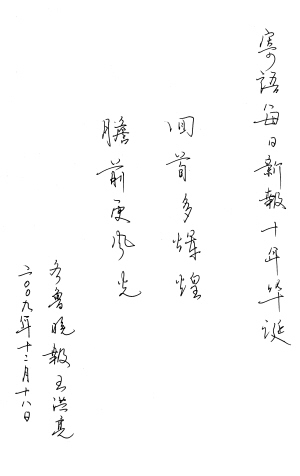 寄语每日新报十年华诞
回首多灿煌
瞻前更风光
齐鲁晚报王洪亮
二〇〇九年十二月十八日